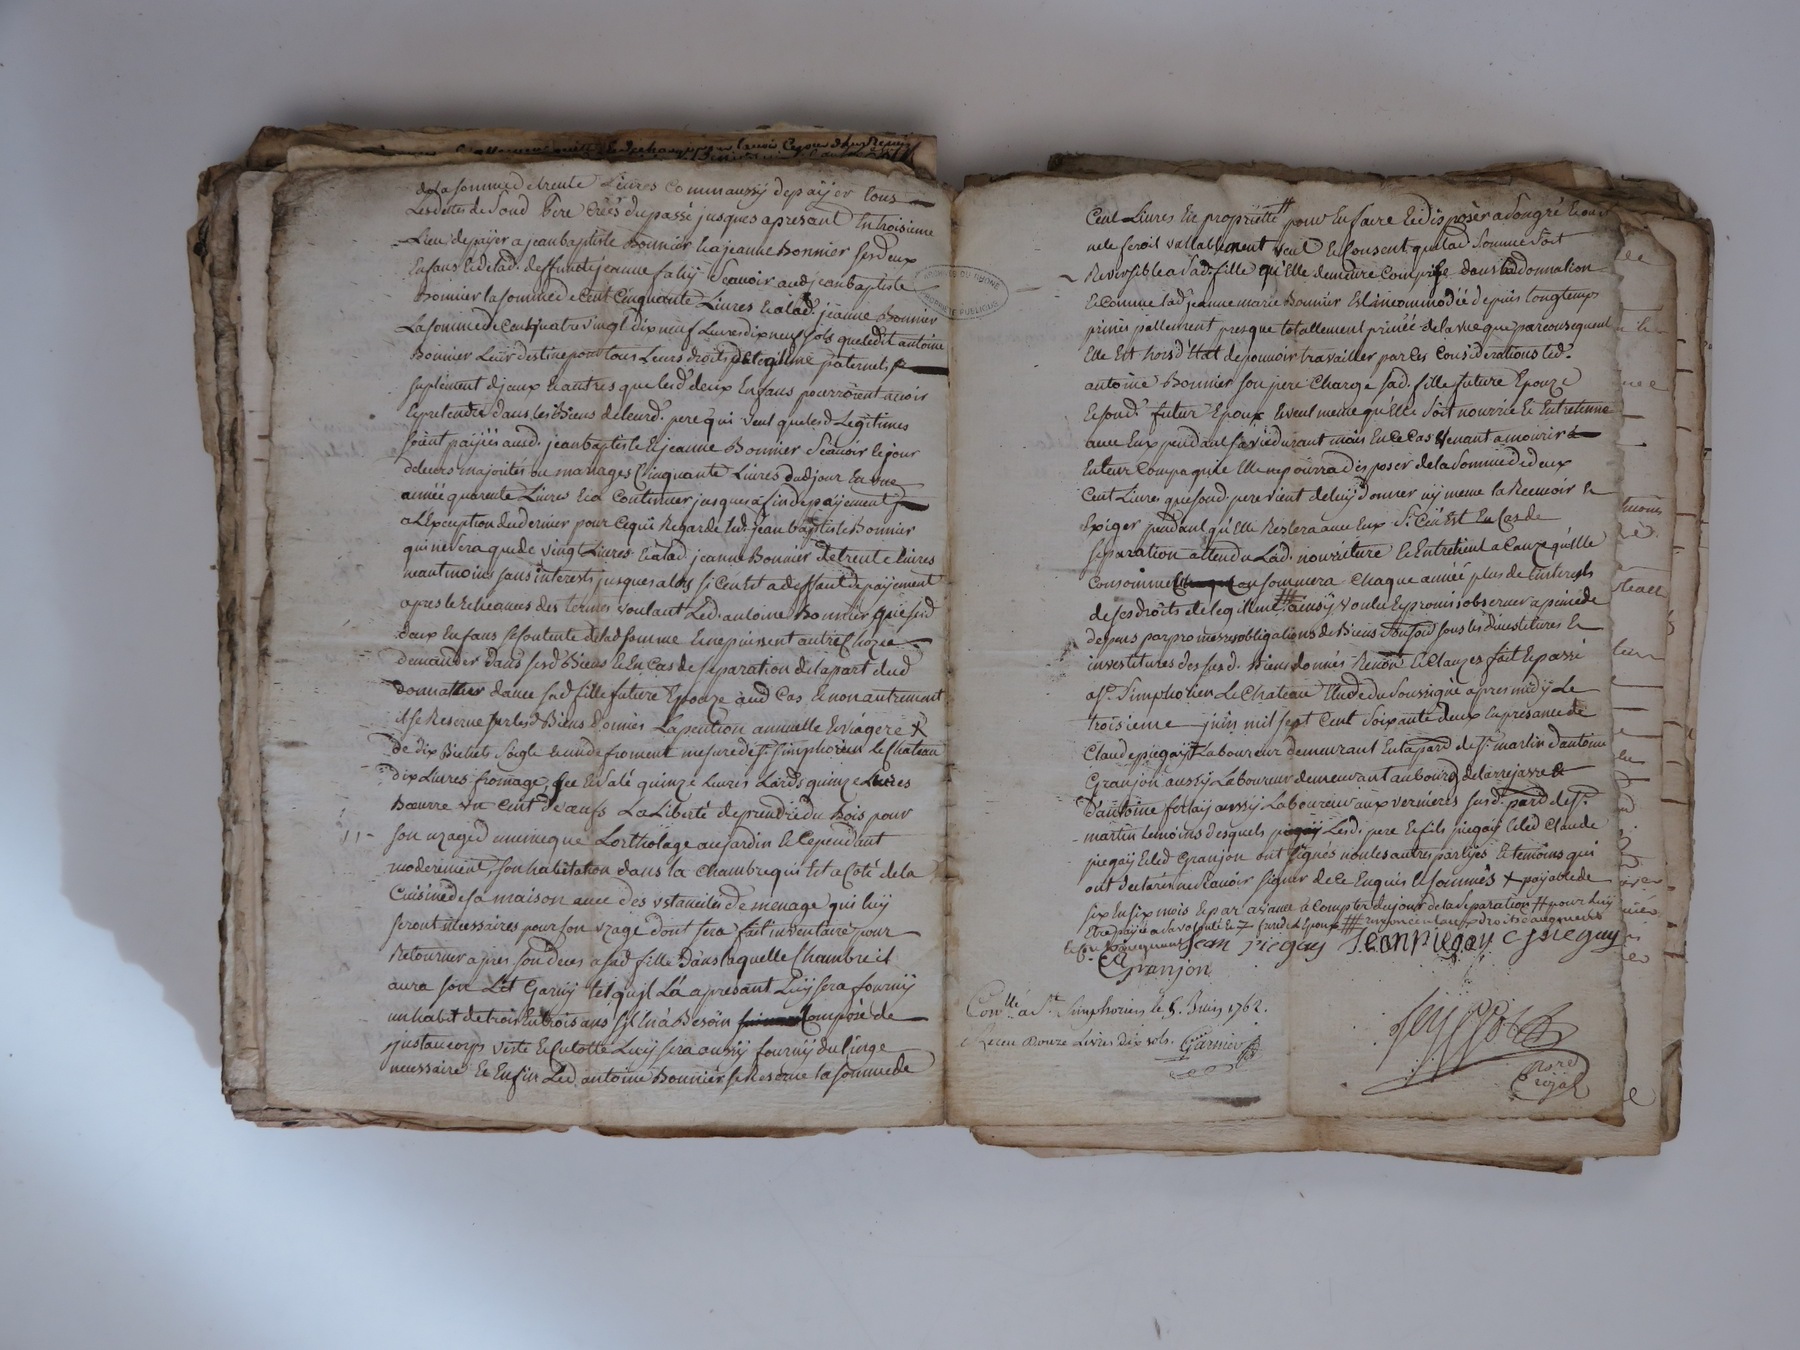 de la somme de trente Livres comm aussy de payer tous
Les dettes de Sond Pere creés du passé jusques apresant En troisieme
Lieu de payer a jean baptiste Bonnier Et a jeanne Bonnier ses deux
Enfans Et de lad. deffunte jeanne Scavoir aud jean baptiste
Bonnier la somme de Cent Cinquante Livres Et a lad. jeanne Bonnier
La somme de Cent quatre vingt dix neuf Livres dix neuf sols que ledit antoine
Bonnier Leur destine pour tous Leurs droits de legitime paternel,
suplément d'jceux Et autres que lesd. deux Enfans pourroient avoir
Et pretendre dans les Biens de leurd. pere qui veut que lesd Legitimes
soient payées ausd. jean baptiste Et jeanne Bonnier Scavoir le jour
de leurs majorités ou mariages Cinquante Livres dud jour En une
année quarente Livres Et a Continuer jusques a fin de payement
a L'Exception du dernier pour Ce qui Regarde led. jean baptiste Bonnier
qui ne sera que de vingt Livres Et a lad jeanne Bonnier de trente livres
neantmoins sans interests jusques alors si Ce n'est a deffaut de payement
apres les Echeances des termes voulant Led. antoine Bonnier que sesd
deux Enfans se contente de lad somme Et ne puissent autre Choze
demander dans sesd. Biens Et En Cas de separation de la part dud
donnateur d'avec sad fille future Epouze aud Cas Et non autrement
il se Reserve sur lesd Biens donnés La pention annuelle Et viagere +
de dix Bichets Seigle Et un de froment mesure de St. Simphorien le Chateau
dix Livres fromage, salé quinze Livres Lards quinze Livres
Beurre un Cent d'œufs La Liberté de prendre du Bois pour
son uzage Lorthotage au jardin Et Cependant
moderement, son habitation dans la Chambre qui Est a Coté de la
Cuisine de sa maison avec des ustanciles de menage qui luy
seront necessaires pour son uzage dont sera fait inventaire pour
Retourner apres son deces a sad fille Dans laquelle Chambre il
aura son Lit Garny tel qu'jl L'a apresant Luy sera fourny
un habit de trois En trois ans s'jl En a Besoin Composé de
justaucorps veste Et Culotte Luy sera aussy fourny du linge
necessaire Et Enfin Led. antoine Bonnier se Reserve la somme de
ARCHIVES DU RHONE
PROPRIÉTÉ PUBLIQUE
Cent Livres En proprietté # pour En faire Et disposer a Son gré Et ou il
ne le feroit vallablement veut Et Consent que lad. Somme Soit
Reversible a Sad. fille qu'Elle demeure Comprise dans lad donnation
Et Comme lad. jeanne marie Bonnier Est incommodée depuis longtemps
presque totallement privée de la vue que par consequent
Elle Est hors d'Etat de pouvoir travailler par Ces Considerations led.
antoine Bonnier son pere Charge sad. fille future Epouze
Et sond. futur Epoux Et veut meme qu'Elle soit nourrie Et Entretenue
avec Eux pendant sa vie durant mais En Ce Cas Venant a mourir
En leur Compagnie Elle ne pourra disposer de la Somme de deux
Cent Livres que sond. pere vient de luy donner ny meme la Recevoir Et
Exiger pendant qu'Elle Restera avec Eux Si Ce n'Est En Cas de
separation attendu Lad. nourriture Et Entretient a Cauze qu'Elle
Consomme Et consommera Chaque année plus de L'interest
de ses droits de legitime ### ainsy voulu Et promis observer a peine de
depens par promesses obligations de Biens sous les devestitures Et
investitures des susd. Biens donnés Renon. Et Clauzes fait Et passé
a St. Simphorien Le Chateau Etude du Soussigné apres midy Le
troisieme juin mil sept Cent Soixante deux En presance de
Claude piegay Laboureur demeurant En la pard de St. martin d'antoine
Granjon aussy Laboureur demeurant au bourg de larrejasse Et
D'antoine aussy Laboureur aux vernieres susd. pard de St.
martin temoins desquels Lesd. pere Et fils piegay Et led Claude
piegay Et led Granjon ont signés non les autres partyes Et temoins qui
ont declarés ne scavoir signer de Ce Enquis Et sommés + payable de
six En six mois Et par avance a Compter du jour de la separation # pour luy
Etre payée a sa volonté
Jean Piegay Jean piegay C piegay
Granjon
Conllé a St. Simphorien le 5. Juin 1762.
Receu douze Livres dix sols. Garnier
Nore
Royal